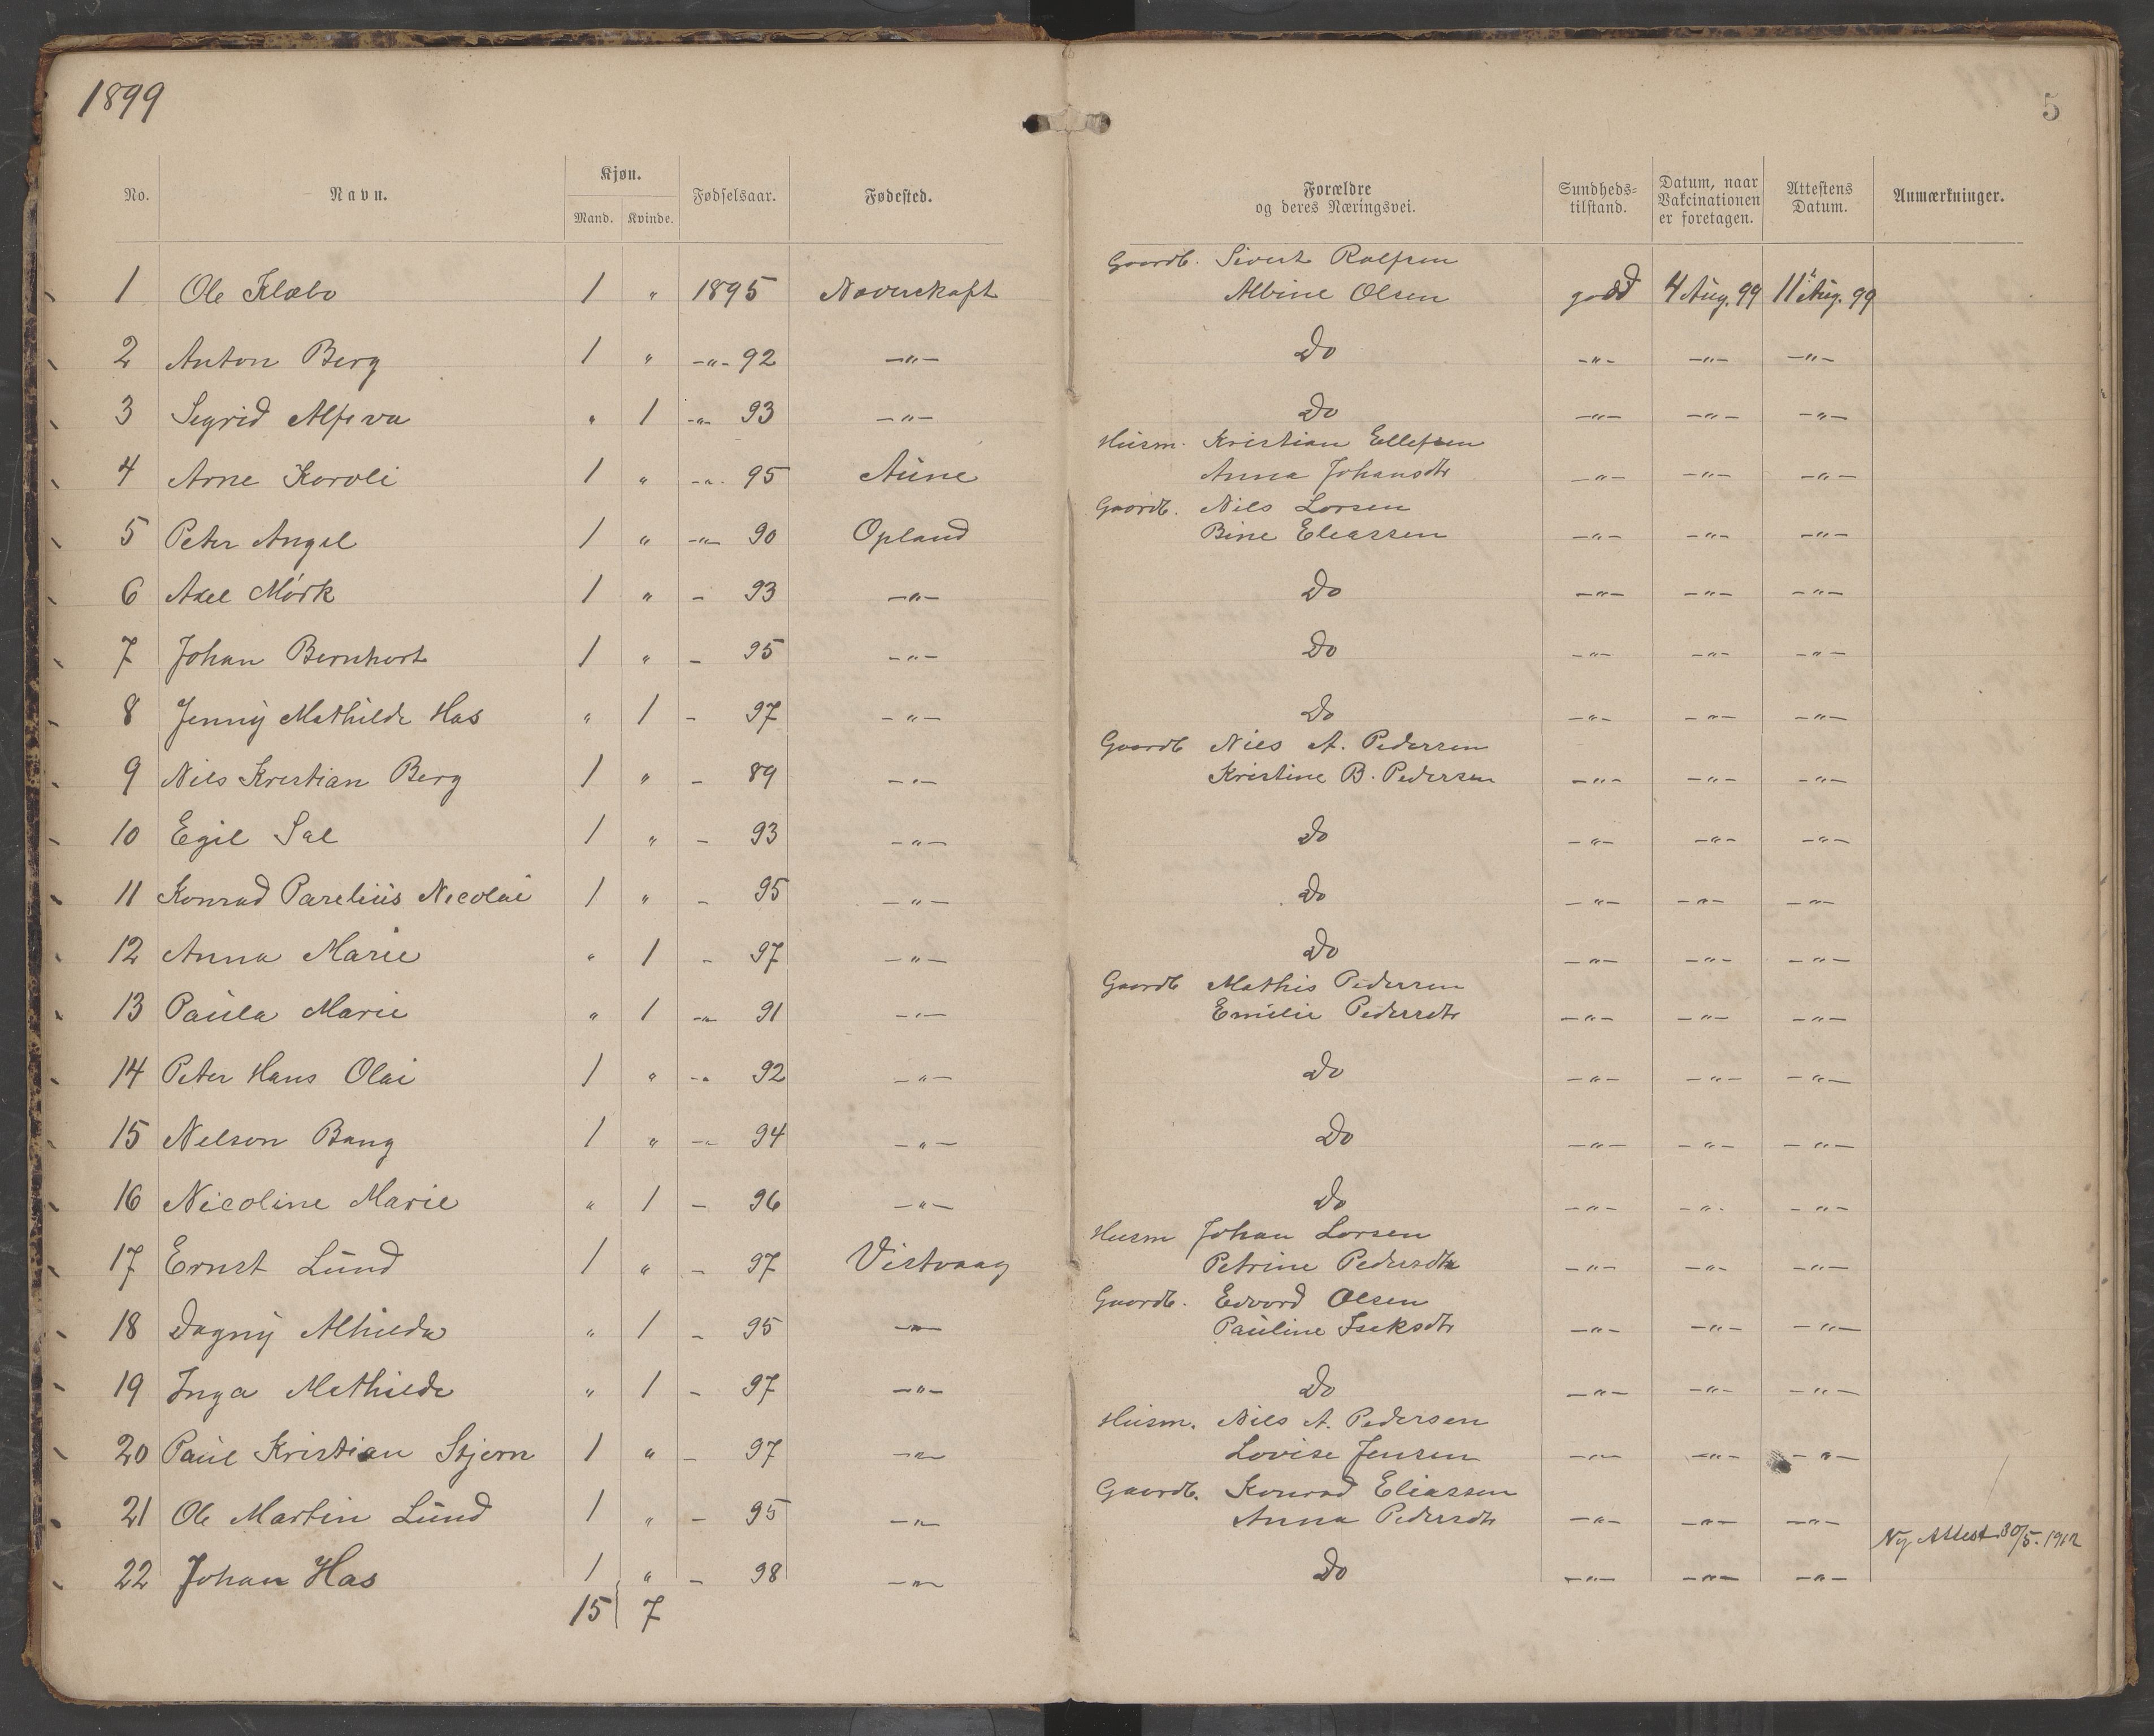 1899
5
No. Navn. Kjøn. Fødselsaar. Fødested. Forældre og deres Næringsvei. Sundheds-tilstand. Datum, naar Vakcinationen er foretagen. Attestens Datum. Anmærkninger.
Mand. Kvinde.
Gaardb. Sivert Rolfsen
1 Ole Klæbo 1 " 1895 Naverskaft Albine Olsen god 4 Aug. 99 11 Aug. 99
2 Anton Berg 1 " -"- 92 -"- Do -"- -"- -"-
3 Sigrid Alfeva " 1 -"- 93 -"- Do -"- -"- -"-
Husm. Kristian Ellefsen
4 Arne Karoli 1 " -"- 95 Aune Anna Johansdtr -"- -"- -"-
Gaardb. Nils Larsen
5 Peter Angel 1 " -"- 90 Opland Bine Eleassen -"- -"- -"-
6 Axel Mørk 1 " - 93 -"- Do -"- -"- -"-
7 Johan Bernhart 1 " - 95 -"- Do -"- -"- -"-
8 Jenny Mathilde Has " 1 - 97 -"- Do -"- -"- -"-
Gaardb Nils A. Pedersen
9 Nils Kristian Berg 1 " - 89 -"- Kristine B. Pedersen -"- -"- -"-
10 Egil Sal 1 " - 93 -"- Do -"- -"- -"-
11 Konrad Parelius Nicolai 1 " - 95 -"- Do -"- -"- -"-
12 Anna Marie " 1 - 97 -"- Do -"- -"- -"-
Gaardb Mathis Pedersen
13 Paula Marie " 1 -"- 91 -"- Emilie Pedersdtr -"- -"- -"-
14 Peter Hans Olai 1 " -"- 92 -"- Do -"- -"- -"-
15 Nelson Bang 1 " -"- 94 -"- Do -"- -"- -"-
16 Nicoline Marie " 1 - 96 -"- Do -"- -"- -"-
Husm Johan Larsen
17 Ernst Lund 1 " - 97 Vistvaag Petrine Pedersdtr -"- -"- -"-
Gaardb. Edvard Olsen
18 Dagny Alhilda " 1 - 95 -"- Pauline Isaksdtr -"- -"- -"-
19 Inga Mathilde " 1 - 97 -"- Do -"- -"- -"-
Husm. Nils A. Pedersen
20 Paul Kristian Stjern 1 " - 97 -"- Lovise Jensen -"- -"- -"-
Gaardb. Konrad Eliassen
21 Ole Martin Lund 1 " - 95 -"- Anna Pedersdtr -"- -"- -"-
Ny Attest 30/5. 1912
22 Johan Has 1 " - 98 -"- Do -"- -"- -"-
15 7